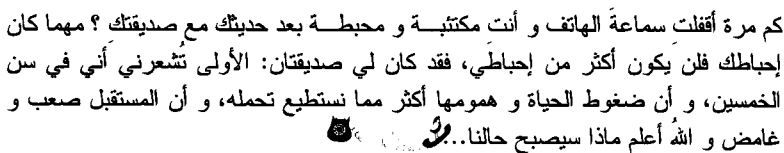 كم مرة أقفلتِ سماعةَ الهاتف و أنت مكتئبـــة و محبطـــة بعد حديثك مع صديقتك ؟ مهما كان
إحباطك فلن يكون أكثر من إحباطي، فقد كان لي صديقتان: الأولى تُشعرني أني في سن
الخمسين، و أن ضغوط الحياة و همومها أكثر مما نستطيع تحمله، و أن المستقبل صعب و
غامض و اللهُ أعلم ماذا سيصبح حالنا...